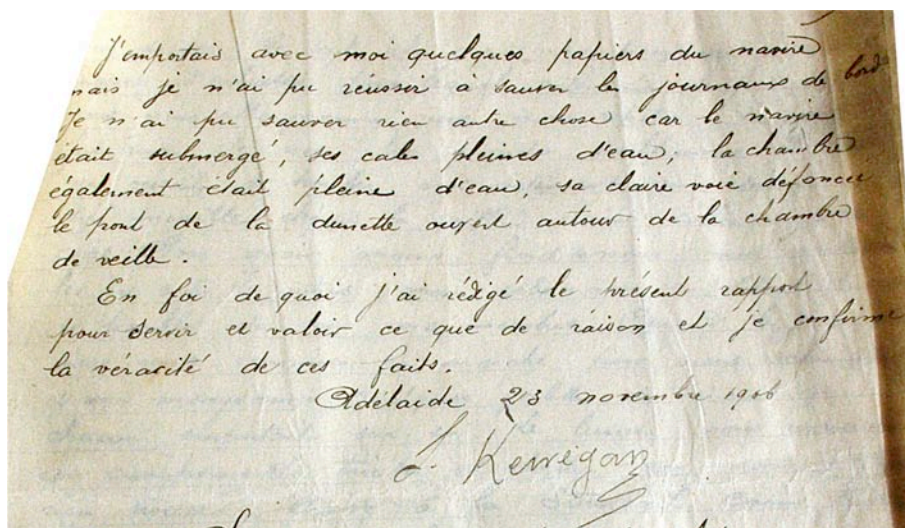 J'emportais avec moi quelques papiers du navire
mais je n'ai pu réussir à sauver les journaux de bord
Je n'ai pu sauver rien autre chose car le navire
était submergé, ses cales pleines d'eau, la chambre
également était pleine d'eau, sa claire voie défoncée
le pont de la dunette ouvert autour de la chambre
de veille.
En foi de quoi j'ai rédigé le présent rapport
pour servir et valoir ce que de raison et je confirme
la véracité de ces faits.
Adélaide 23 novembre 1906
L. Kerrégan